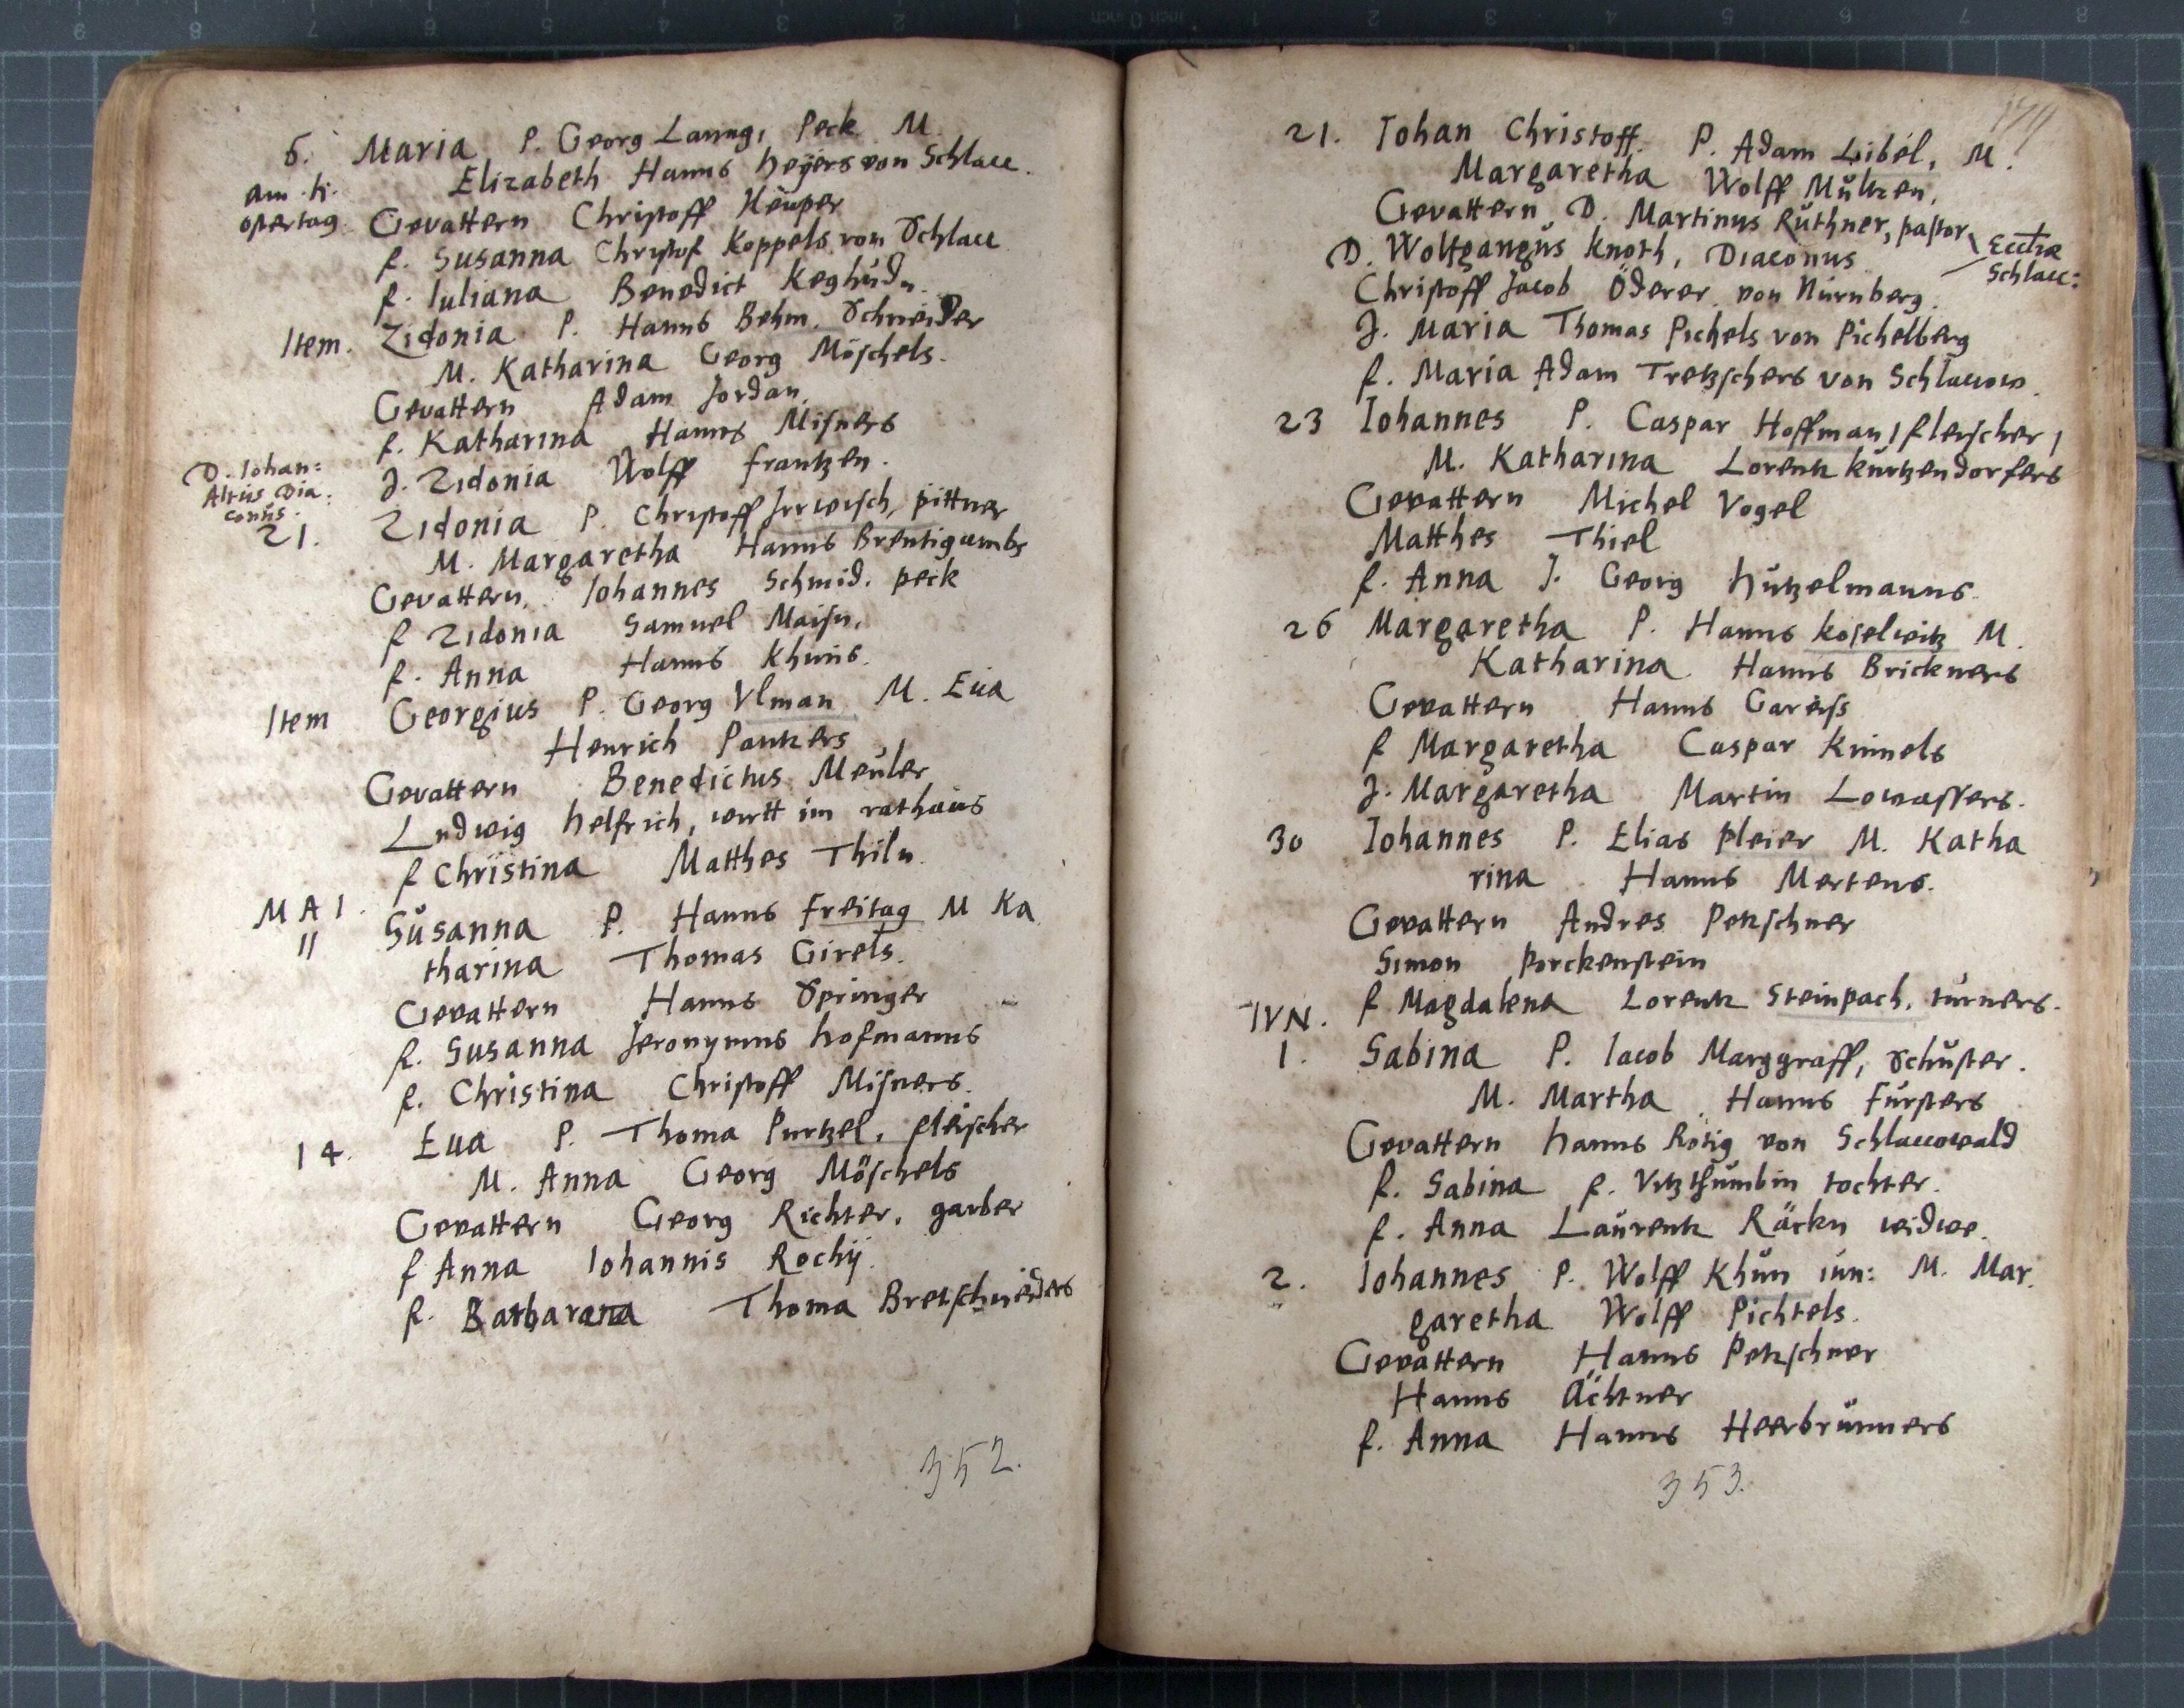 6. Maria P. Georg Lanng, Peck M.
am h. Elizabeth Hanns heyers von Schlacc.
ostertag. Gevattern Christoff Heuper
f. Susanna Christof Koppels von Schlacc
f. Iuliana Benedict Keghudn.
Item. Zidonia P. Hanns Behm. Schneider
M. Katharina Georg Möschels.
Gevattern Adam Jordan.
f. Katharina Hanns Misners
J. Zidonia Wolff frantzen.
D. Iohan:
Altus Dia:
conus.
21. Zidonia P. Christoff Irrwisch, pittner
M. Margaretha Hanns Breutigambs
Gevattern. Iohannes Schmid. peck
f Zidonia Samuel Maisn.
f. Anna Hanns Khuns.
Item Georgius P. Georg Vlman M. Eua
Henrich Pantzers
Gevattern Benedictus Meuler
Ludwig helfrich, wirtt im rathaus
f Christina Matthes Thiln.
MAI.
11 Susanna P. Hanns freitag M Ka
tharina Thomas Girels.
Gevattern Hanns Springer
f. Susanna Jeronymus hofmanns
f. Christina Christoff Misners.
14. Eua P. Thoma Purtzel, fleischer
M. Anna Georg Möschels
Gevattern Georg Richter, garber
f Anna Iohannis Rochij.
f. Barbara Thoma Bretschneiders
352.
179
21. Iohan Christoff. P. Adam Libel, M.
Margaretha Wolff Multzen.
Gevattern D. Martinus Ruthner, pastor
D. Wolfgangus Knoth, Diaconus
Eccliæ
Schlacc:
Christoff Jacob Öderer von Nurnberg.
J. Maria Thomas Pichels von Pichelberg
f. Maria Adam Tretzschers von Schlaccow.
23 Iohannes P. Caspar Hoffman, fleischer,
M. Katharina Lorentz kurtzendorfers
Gevattern Michel Vogel
Matthes Thiel
f. Anna J. Georg hutzelmanns.
26 Margaretha P. Hanns koselwitz M.
Katharina Hanns Brickners
Gevattern Hanns Gareiss
f Margaretha Caspar Kumels
J. Margaretha Martin Lowassers.
30 Iohannes P. Elias Pleier M. Katha
rina Hanns Mertens.
Gevattern Andres Petzschner
Simon Porckenstein
f Magdalena Lorentz Steinpach, turners.
IVN.
1. Sabina P. Iacob Marggraff, Schuster.
M. Martha Hanns Fursters
Gevattern hanns Rotig von Schlaccowald
f. Sabina f. Vitzthumbin tochter.
f. Anna Laurentz Räckn widwe.
2. Iohannes P. Wolff Khun iun: M. Mar.
garetha Wolff Pichtels.
Gevattern Hanns Petzschner
Hanns Ächtner
f. Anna Hanns Heerbrunners
353.